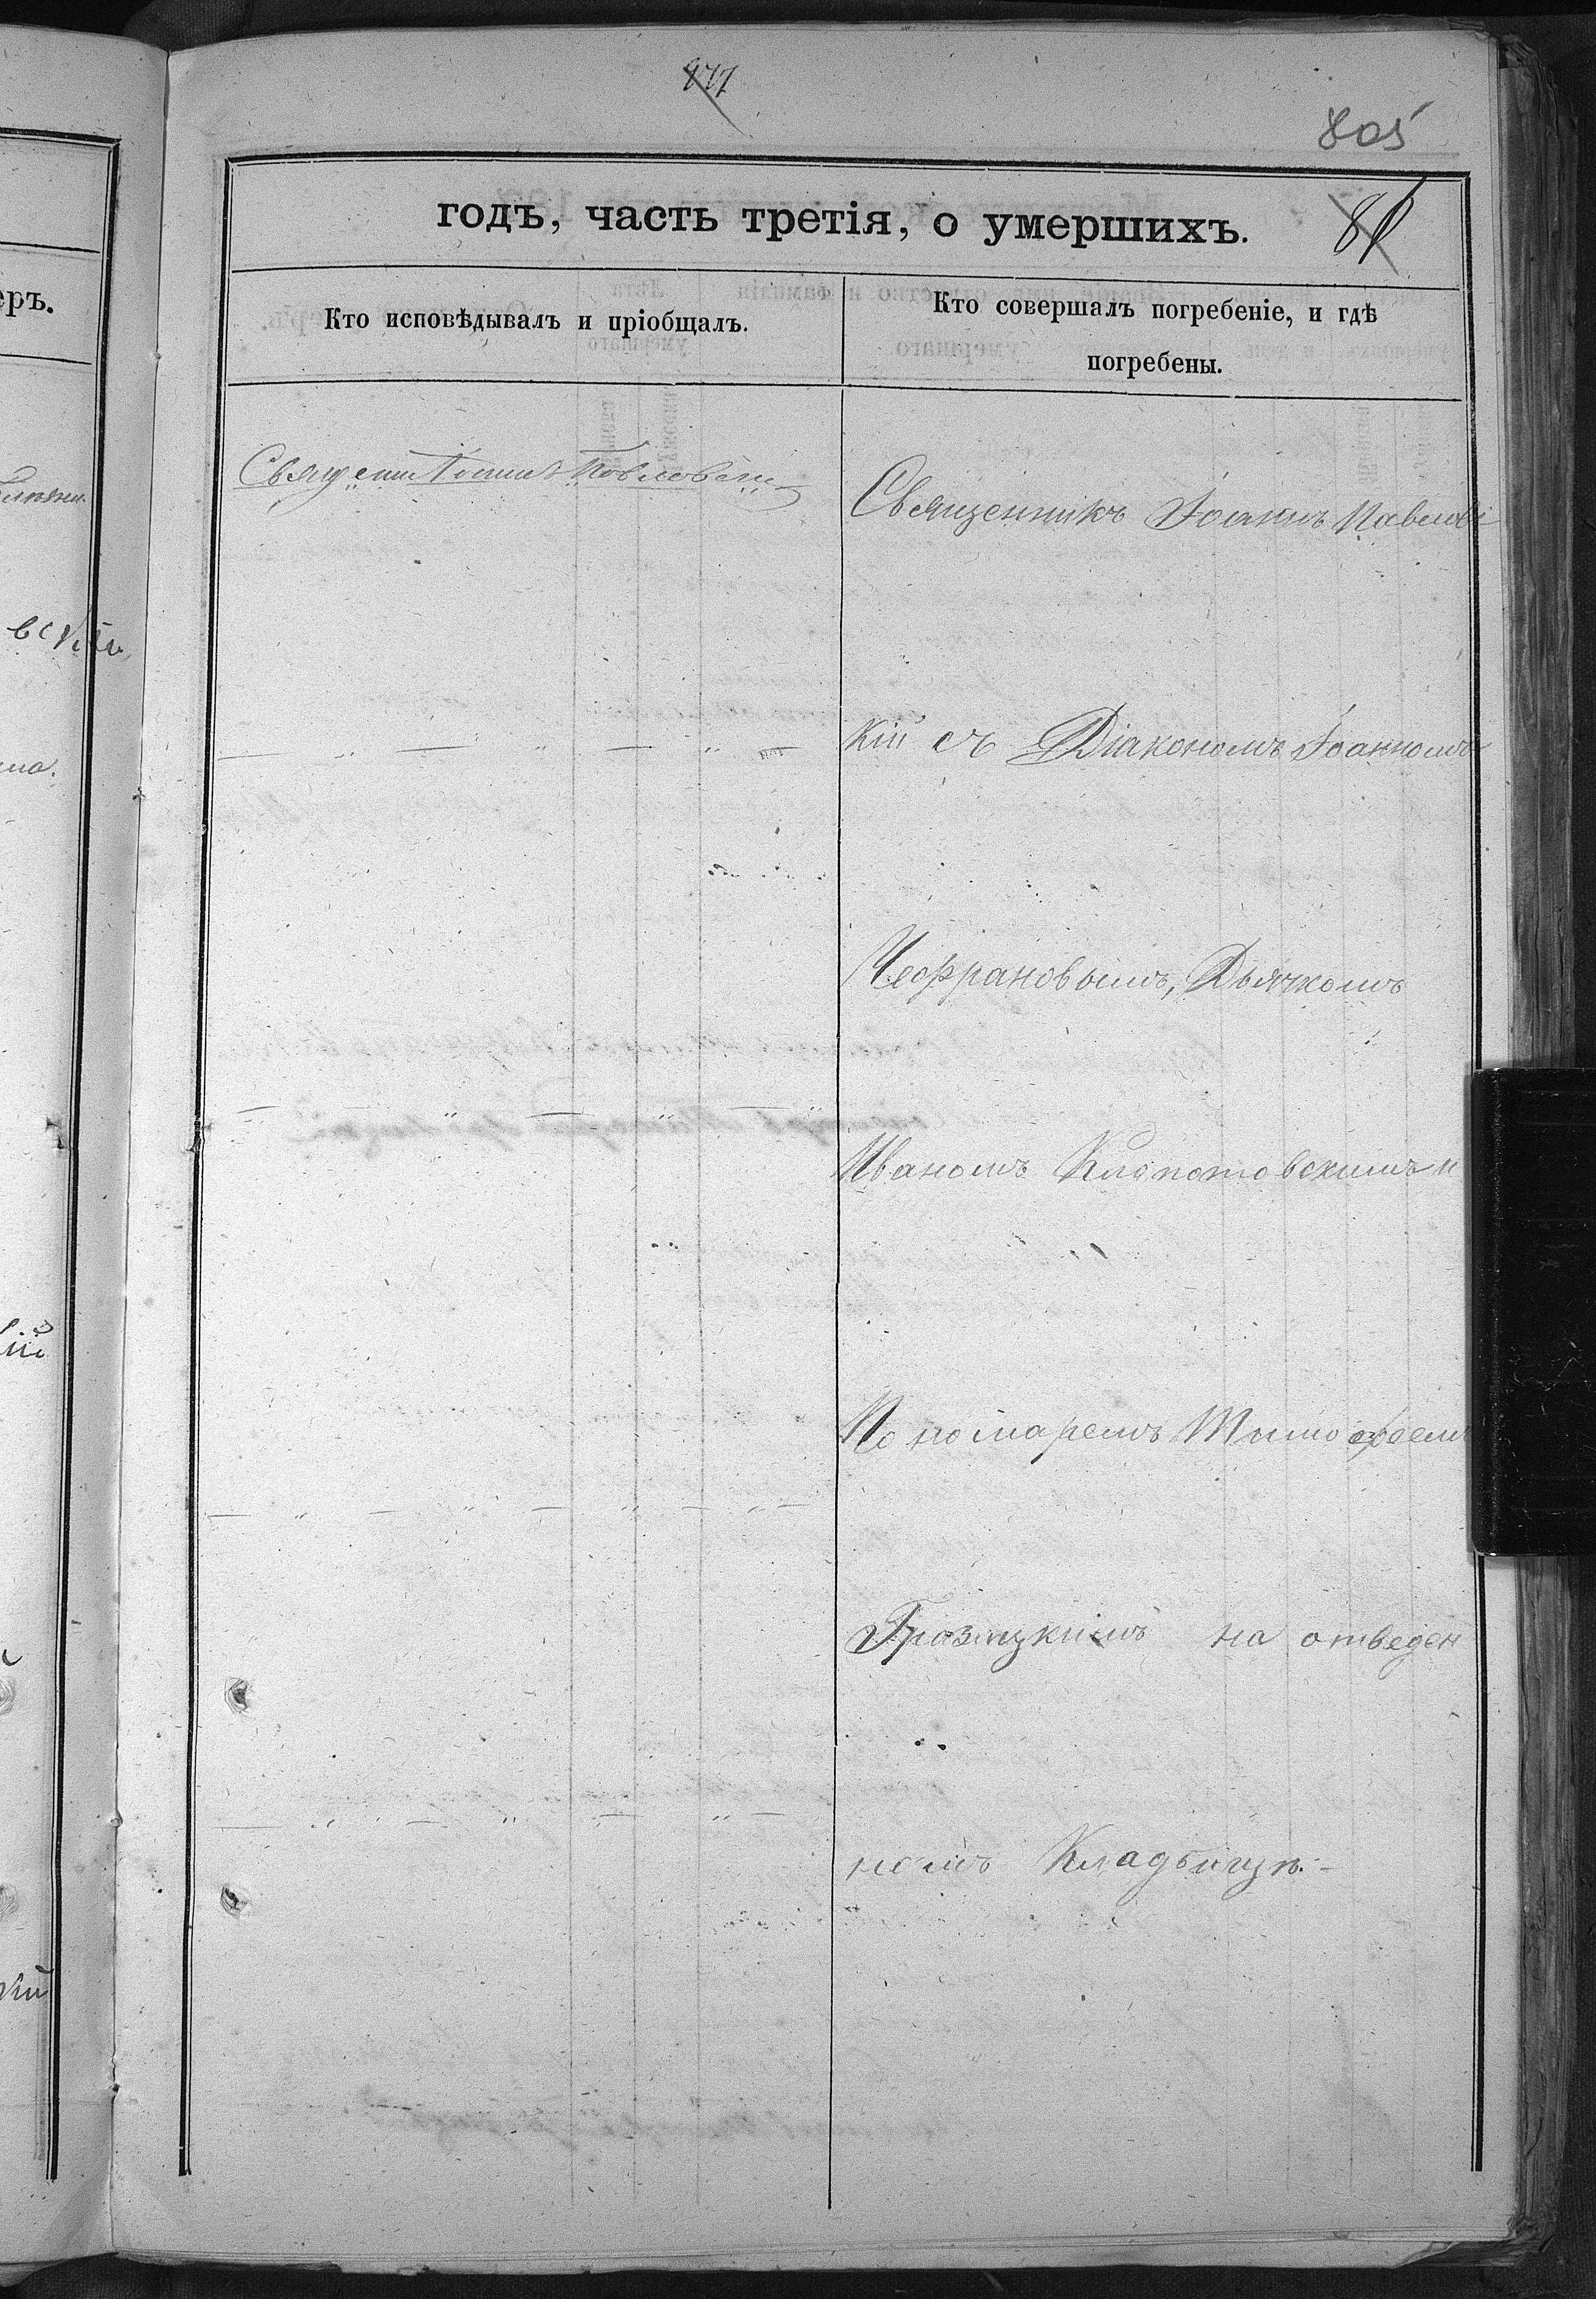 877
805
годъ, часть третія, о умершихъ.
81
еръ.
Кто исповѣдывалъ и пріобщалъ.
Кто совершалъ погребеніе, и гдѣ
погребены.
Священник Іоанн Павловскій
Священникъ Іоаннъ Павловс
кій съ Діакономъ Іоанномъ
Чефрановымъ, Дьячкомъ
Иваномъ Клопотовскимъ и
Пономаремъ Тимофеем
Грозицкимъ на отведен
номъ Кладбищѣ.